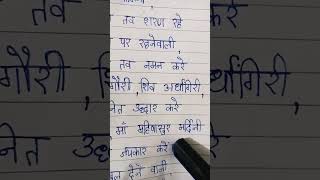 तव शरण रहे
पर रहनेवाली,
तव नमन करे
गौरी, शिव अर्धांगिरी
गौरी, शिव अर्धांगिरी,
उद्धार करे
माँ महिषासुर मर्दिनी
उपकार करे
देने वाली,